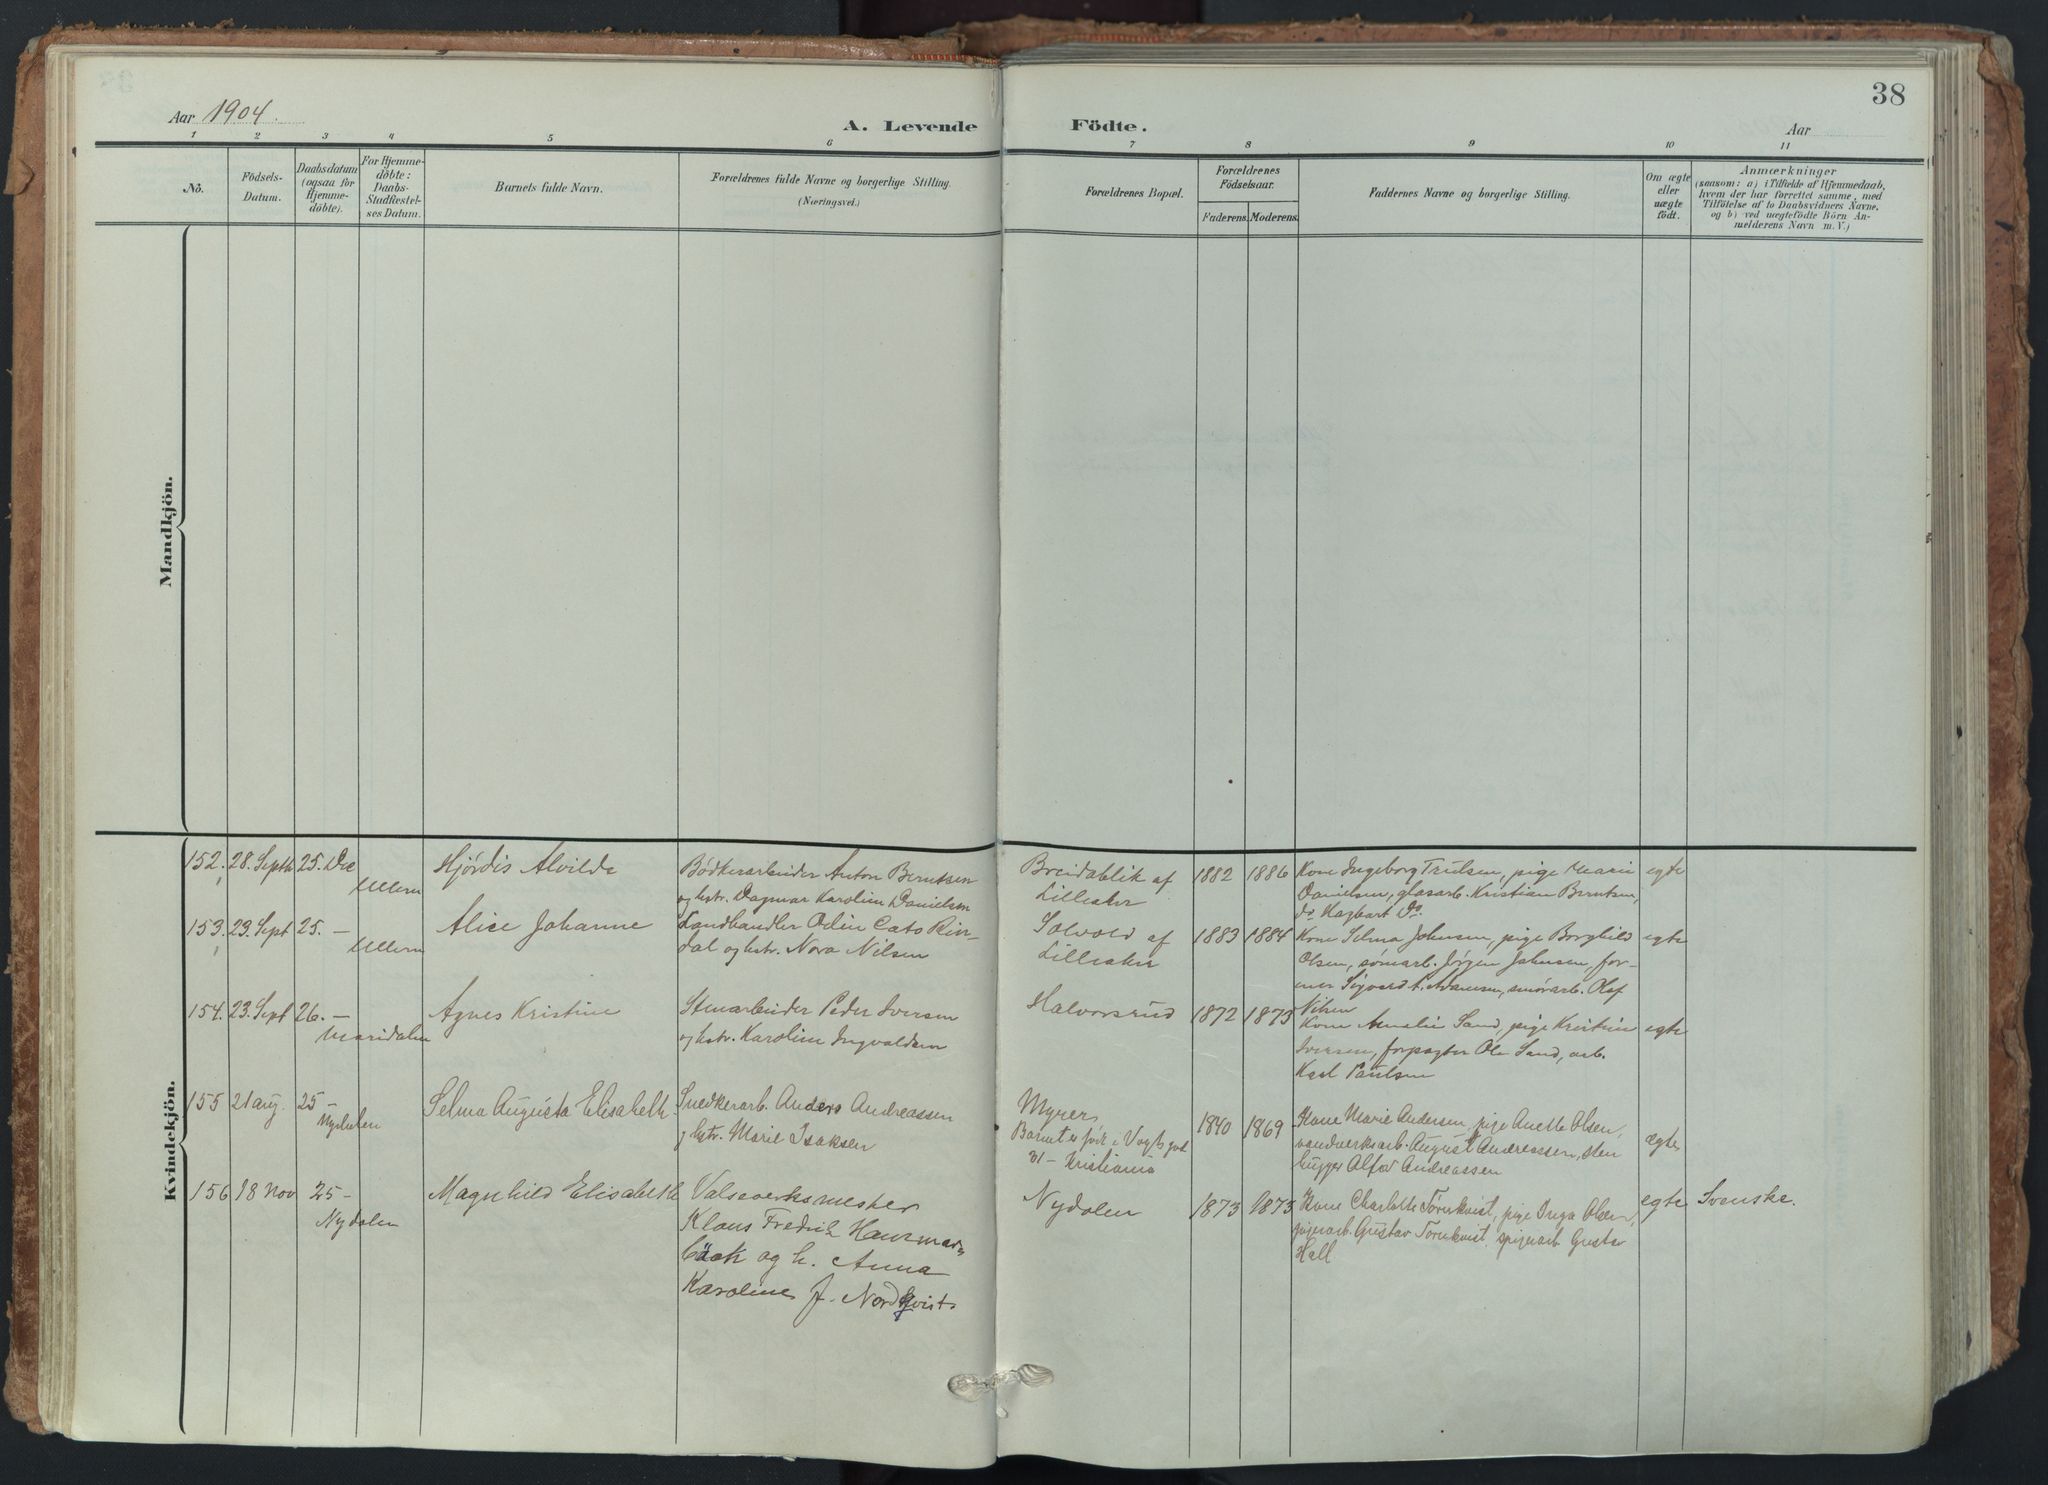 38
Aar 1904.
A. Levende Födte.
Aar
1 2 3 4 5 6 7 8 9 10 11
No.
Födsels-
Datum.
Daabsdatum
(ogsaa for
Hjemme-
döbte).
For Hjemme-
döbte:
Daabs-
Stadfæstel-
ses Datum.
Barnets fulde Navn.
Forældrenes fulde Navne og borgerlige Stilling.
(Næringsvei.)
Forældrenes Bopæl.
Forældrenes
Födselsaar.
Faderens. Moderens.
Faddernes Navne og borgerlige Stilling.
Om ægte
eller
uægte
födt.
Anmærkninger
(saasom: a) i Tilfælde af Hjemmedaab,
hvem der har forrettet samme, med
Tilföielse af to Daabsvidners Navne,
og b) ved uægtefödte Börn An-
melderens Navn m. V.)
Mandkjön.
Kvindekjön.
152. 28. Septb 25. Dec
Ullern
Hjørdis Alvilde
Bødkerarbeider Anton Berntsen
og hstr. Dagmar Karoline Danielsen
Breidablik af
Lilleaker
1882 1886
Kone Ingeborg Trulsen, pige Marie
Danielsen, glasarb. Kristian Berntsen,
do Hagbart Do
egte
153. 23. Sept 25. –
Ullern
Alice Johanne
Landhandler Odin Cato Rin-
dal og hstr. Nora Nilsen
Solvold af
Lilleaker
1883 1884
Kone Selma Johnsen, pige Borghild
Olsen, sømarb. Jørgen Johnsen, for-
mer Sigvard A. Adamsen, smørarb. Olaf
Nilsen
egte
154. 23. Sept 26. –
Maridalen
Agnes Kristine
Stenarbeider Peder Iversen
og hstr. Karoline Ingvaldsen
Halvorsrud
1872 1873
Kone Amalie Sand, pige Kristine
Iversen, forpagter Ole Sand, arb.
Karl Paulsen
egte
155 21 aug. 25 –
Nydalen
Selma Augusta Elisabeth.
Snedkerarb. Anders Andreassen
og hstr. Marie Isaksen
Myrer,
Barnet er født i Vogts gade
31 – Kristiania
1840 1869
Kone Marie Andersen, pige Anette Olsen,
vandverksarb. August Andreassen, sten
hugger Alfor Andreassen
egte
156 18 nov 25 –
Nydalen
Magnhild Elisabeth
Valseverksmester
Klaus Fredrik Hansmar
bäck og h. Anna
Karoline f. Nordqvist
Nydalen
1873 1873
Kone Charlotte Törnkvist, pige Inga Olsen,
spigerarb. Gustav Törnkvist, spigerarb Gustav
Hell
egte
Svenske.